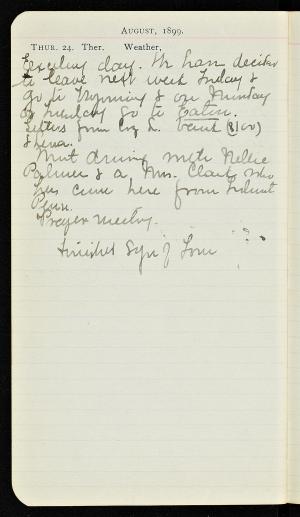 August, 1899.
Thur. 24. Ther. Weather,
Exciting day. We have decided
to leave next week Friday &
go to Wyoming & on Monday
or Tuesday go to Eaton.
Letters from bank (100)
& Lena.
Went driving with Nellie
Palmer & a Mrs. Clark who
has come here from
Penn.
Prayer meeting.
Finished Sign of Four